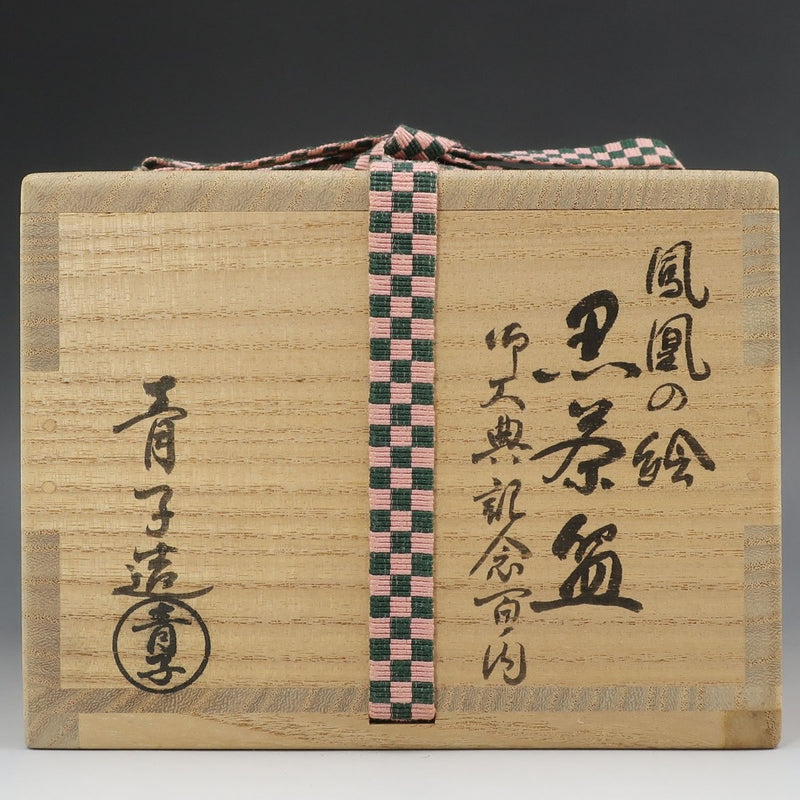 鳳凰の絵
黒茶盌
御大典記念百ノ内
青子造
青子